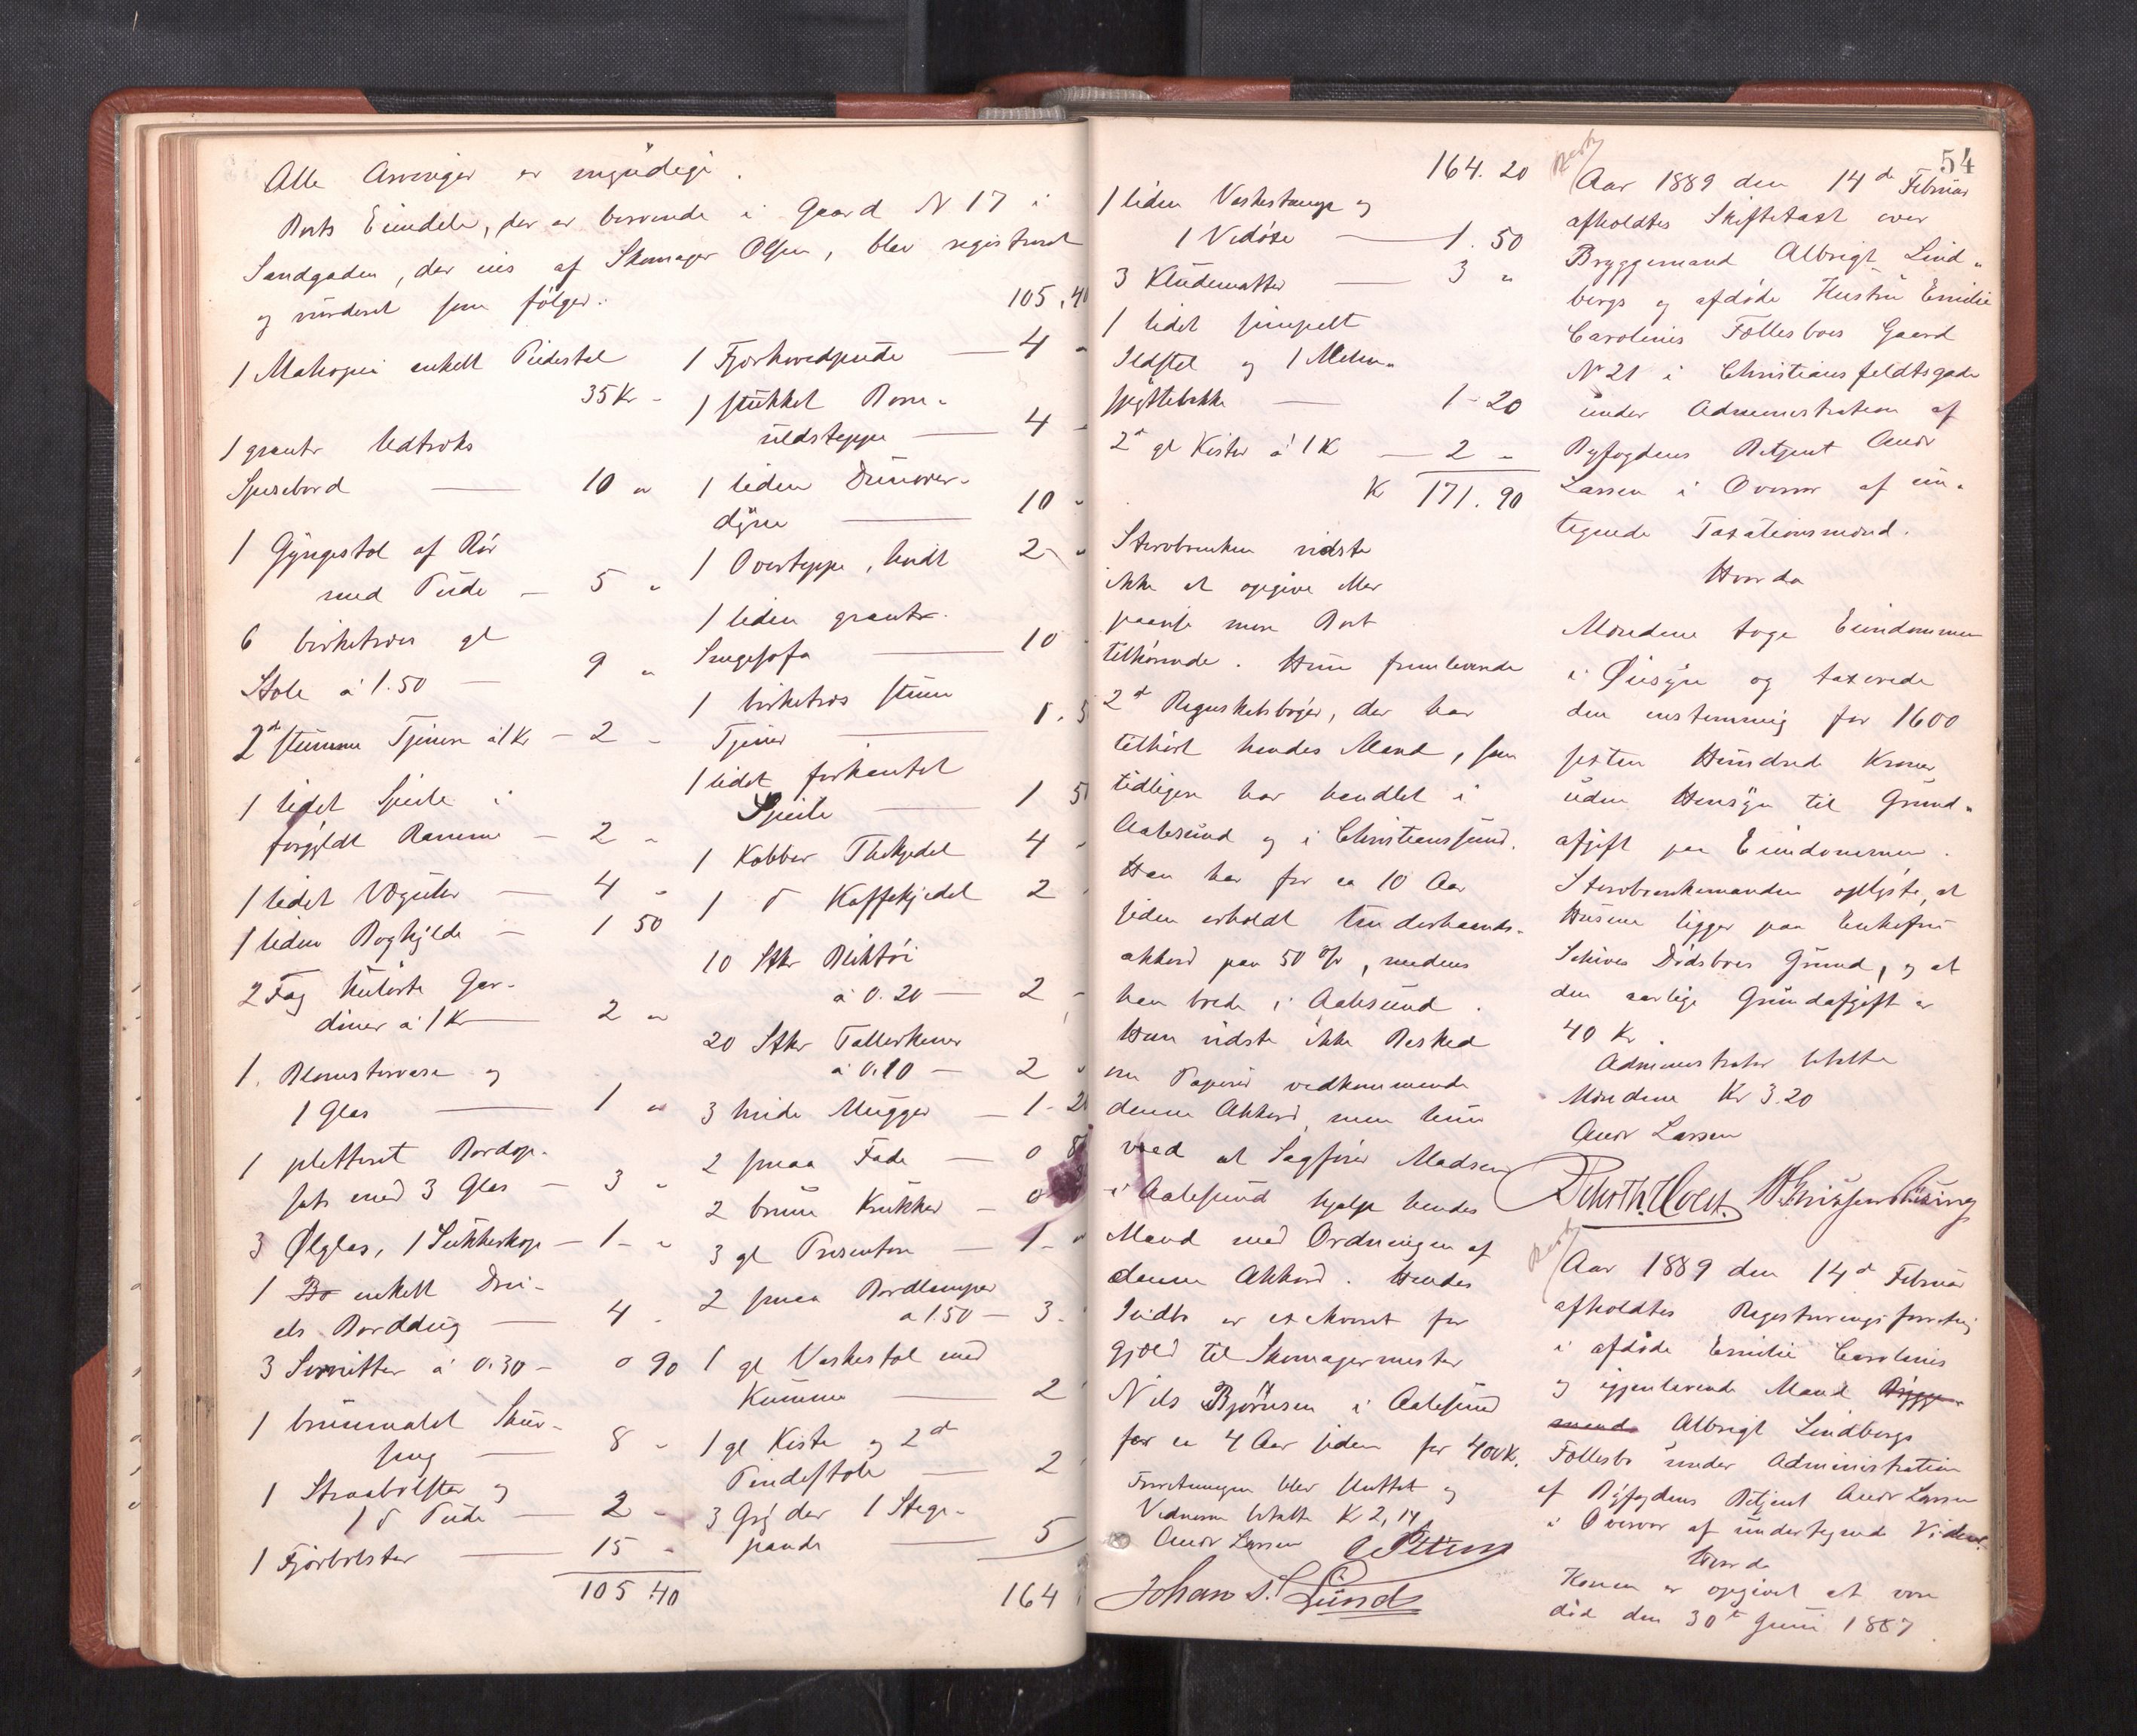 Alle Arvinger er myndige.
Boets Eiendele, der er beroende i Gaard N 17 i
Sandgaden, der eies af Skomager Olsen, blev registreret
og vurderet som følger:
1 Mahogni enkelt Pidestal
35 Kr -
1 grantr Udtræks
Spisebord — 10 "
1 Gyngestol af Rør
med Pude — 5 "
6 birketræes gl
Stole á 1.50 — 9 "
2de Tjenere á 1 Kr — 2 -
1 lidet Speile i
forgyldt Ramme — 2 -
1 lidet Væguhr — 4 -
1 liden Boghylde — 1 50
2 Fag Gar-
diner á 1 Kr — 2 "
1. Blomstervase og
1 Glas — 1 "
1 pletteret Bordop-
sats med 3 Glas — 3 "
3 Ølglas, 1 Sukkerkop — 1 - "
1 Bo enkelt Drei-
els Borddug — 4 -
3 Servietter á 0.30 — 0 90
1 brunmalet Skuv-
seng — 8 -
1 Straabolster og
1 d Pude — 2 -
1 Fjørbolster — 15 -
105.40
105.40
1 Fjørhovedpude — 4 "
1 stukket Bom-
uldsteppe — 4 -
1 liden Dunover-
dyne — 10 -
1 Overteppe, hvidt 2 - "
1 liden grantr.
Sengesofa — 10 -
1 birketræs
Tjener — 1.5
1 lidet firkantet
Speile — 1 5
1 Kobber Thekjedel 4 -
1 d Kaffekjedel 2
10 Stkr Bliktøi
á 0.20 — 2 -
20 Stkr Tallerkener
á 0.10 — 2 "
3 hvide Mugger — 1 - 2
2 smaa Fade — 0 8
2 brune Krukker — 0
3 gl — 1 - "
2 smaa Bordlamper
a 1.50 — 3 -
1 gl Vaskestol med
Kumme — 2
1 gl Kiste og 2de
Pindestole — 2
3 Gryder 1 Stege-
pande — 5
164
164.20
1 liden Vaskestamp og
1 Vedøxe — 1.50
3 Kludematter — 3 "
1 lidet simpelt
Ildstel og 1
spyttebakke — 1 - 20
2de gl Kister á 1 K — 2 -
K 171.90
Stervboenken vidste
ikke at opgive
mere Boet
tilhørende. Hun fremlevende
2de Regnskabsbøger, der har
tilhørt hendes Mand, som
tidligere har handlet i
Aalesund og i Christianssund.
Han har for ca 10 Aar
siden erholdt Underhaands-
akkord paa 50 %, medens
han boede i Aalesund.
Hun vidste ikke Besked
om Papirer vedkommende
denne Akkord, men hun
at Sagfører Madsen
i Aalesund hjalp hendes
Mand med Ordningen af
denne Akkord. Hendes
Indbo er exekveret for
Gjæld til Skomagermester
Nils Bjørnsen i Aalesund
for ca 4 Aar siden for 400 K.
Forretningen blev sluttet og
Vidnerne betalte Kr 2,14
Andr Larsen
Johan S. Lund
54
Aar 1889 den 14de Februar
afholdtes Skiftetaxt over
Bryggemand Albrigt Lind-
bergs og afdøde Hustru Emilie
Carolines Fællesboes Gaard
No 21 i Christiansfeldtsgade
under Administration af
Byfogdens Betjent Andr
Larsen i Overvær af un-
tegnede Taxationsmænd.
Hvorda
Mændene toge Eiendommen
i Øiesyn og taxerede
den enstemmig for 1600
sexten Hundrede Kroner
uden Hensyn til Grund-
afgift paa Eiendommen.
Stervboenkemanden oplyste, at
Husene ligger paa Enkefru
Dødsboes Grund, og at
den aarlige Grundafgift er
40 Kr.
Administrator betalte
Mændene Kr 3.20
Andr Larsen
Aar 1889 den 14de Februar
afholdtes Registreringsforretng
i afdøde Emilie Carolines
og igjenlevende Mand Brygge-
mands Albrigt Lindbergs
Fællesbo under Administration
af Byfogdens Betjent Andr Larsen
i Overvær af undertegnede Vidner.
Hvorda
Konen er opgivet at være
død den 30te Juni 1887.